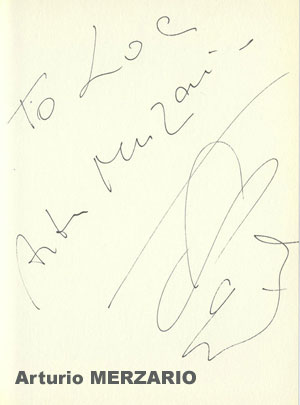 To Loc
Art Merzario
Arturio MERZARIO